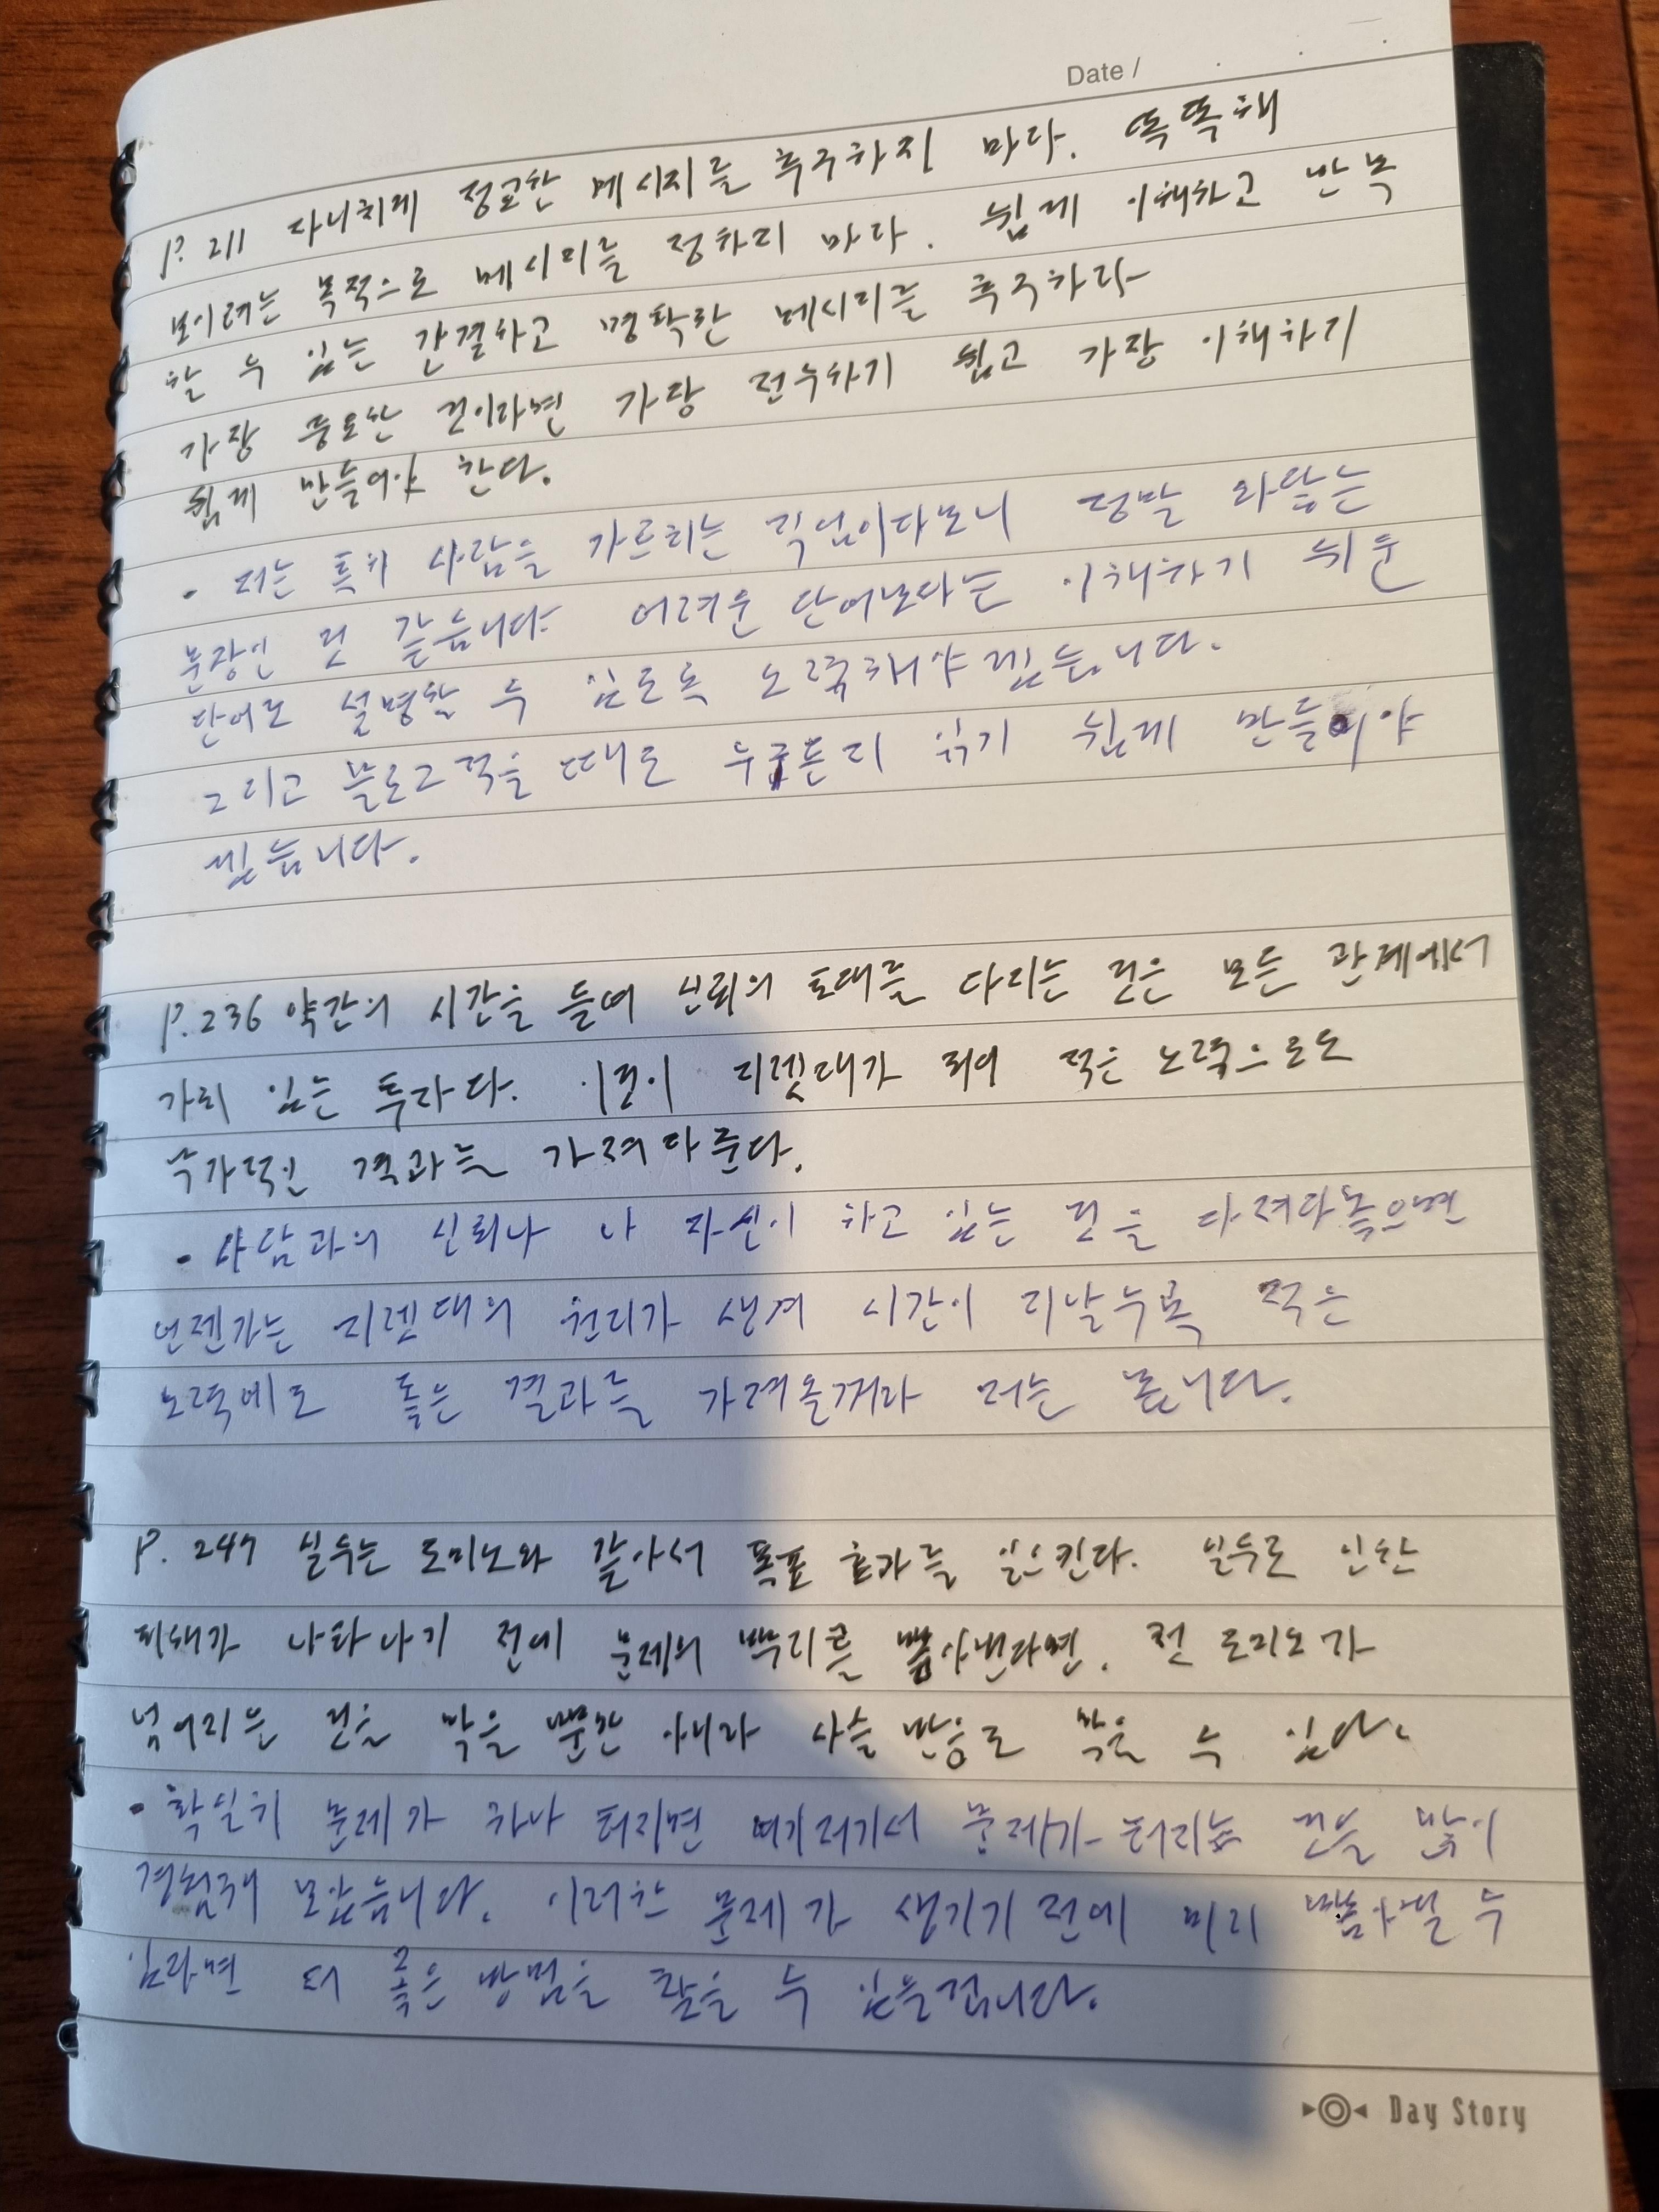 Date /
P. 211 지나치게 정교한 메시지를 추구하지 마라. 똑똑해
보이려는 목적으로 메시지를 정하지 마라. 쉽게 이해하고 반복
할 수 있는 간결하고 명확한 메시지를 추구하라
가장 중요한 것이라면 가장 전수하기 쉽고 가장 이해하기
쉽게 만들어야 한다.
• 저는 특히 사람을 가르치는 직업이다보니 정말 와닿는
문장인 것 같습니다. 어려운 단어보다는 이해하기 쉬운
단어로 설명할 수 있도록 노력해야겠습니다.
그리고 블로그 적을 때도 누구든지 읽기 쉽게 만들어야
겠습니다.
P. 236 약간의 시간을 들여 신뢰의 토대를 다지는 것은 모든 관계에서
가치 있는 투자다. 이것이 지렛대가 되어 적은 노력으로도
추가적인 결과를 가져다 준다.
• 사람과의 신뢰나 나 자신이 하고 있는 것을 다져다놓으면
언젠가는 지렛대의 원리가 생겨 시간이 지날수록 적은
노력에도 좋은 결과를 가져올꺼라 저는 봅니다.
P. 247 실수는 도미노와 같아서 폭포 효과를 일으킨다. 실수로 인한
피해가 나타나기 전에 문제의 뿌리를 뽑아낸다면, 첫 도미노가
넘어지는 것을 막을 뿐만 아니라 사슬 반응도 막을 수 있다.
• 확실히 문제가 하나 터지면 여기저기서 문제가 터지는 것을 많이
경험해 보았습니다. 이러한 문제가 생기기 전에 미리 뽑아낼 수
있다면 더 좋은 방법을 찾을 수 있을겁니다.
Day Story